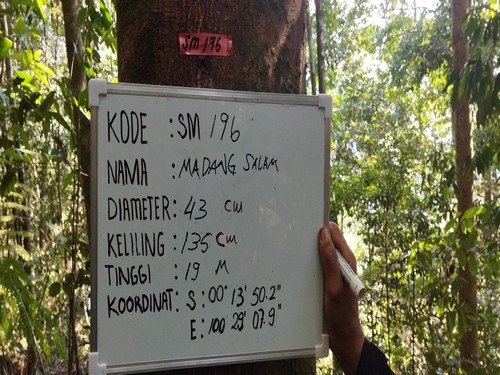 SM 196
KODE : SM 196
NAMA : MADANG SALAM
DIAMETER : 43 cm
KELILING : 135 cm
TINGGI : 19 M
KOORDINAT : S : 00° 13' 50.2"
E : 100 29' 07.9"